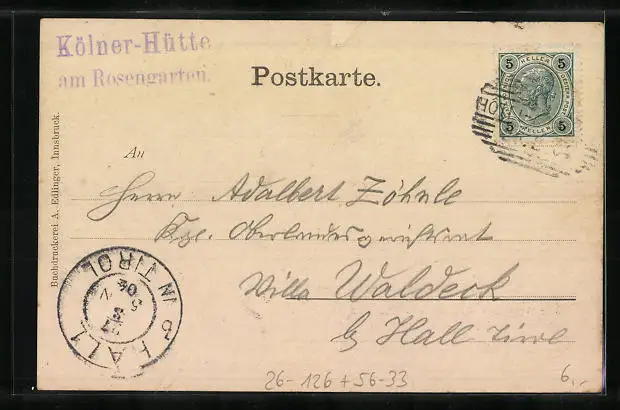 Kölner-Hütte
am Rosengarten.
Postkarte.
5 HELLER 5
5 HELLER 5
An
Herrn Adalbert Zöhnle
Kgl. Oberlandesgerichtsrat
Villa Waldeck
b/ Hall Tirol
HALL IN TIROL
Buchdruckerei A. Edlinger, Innsbruck.
26-126+56-33
6,-